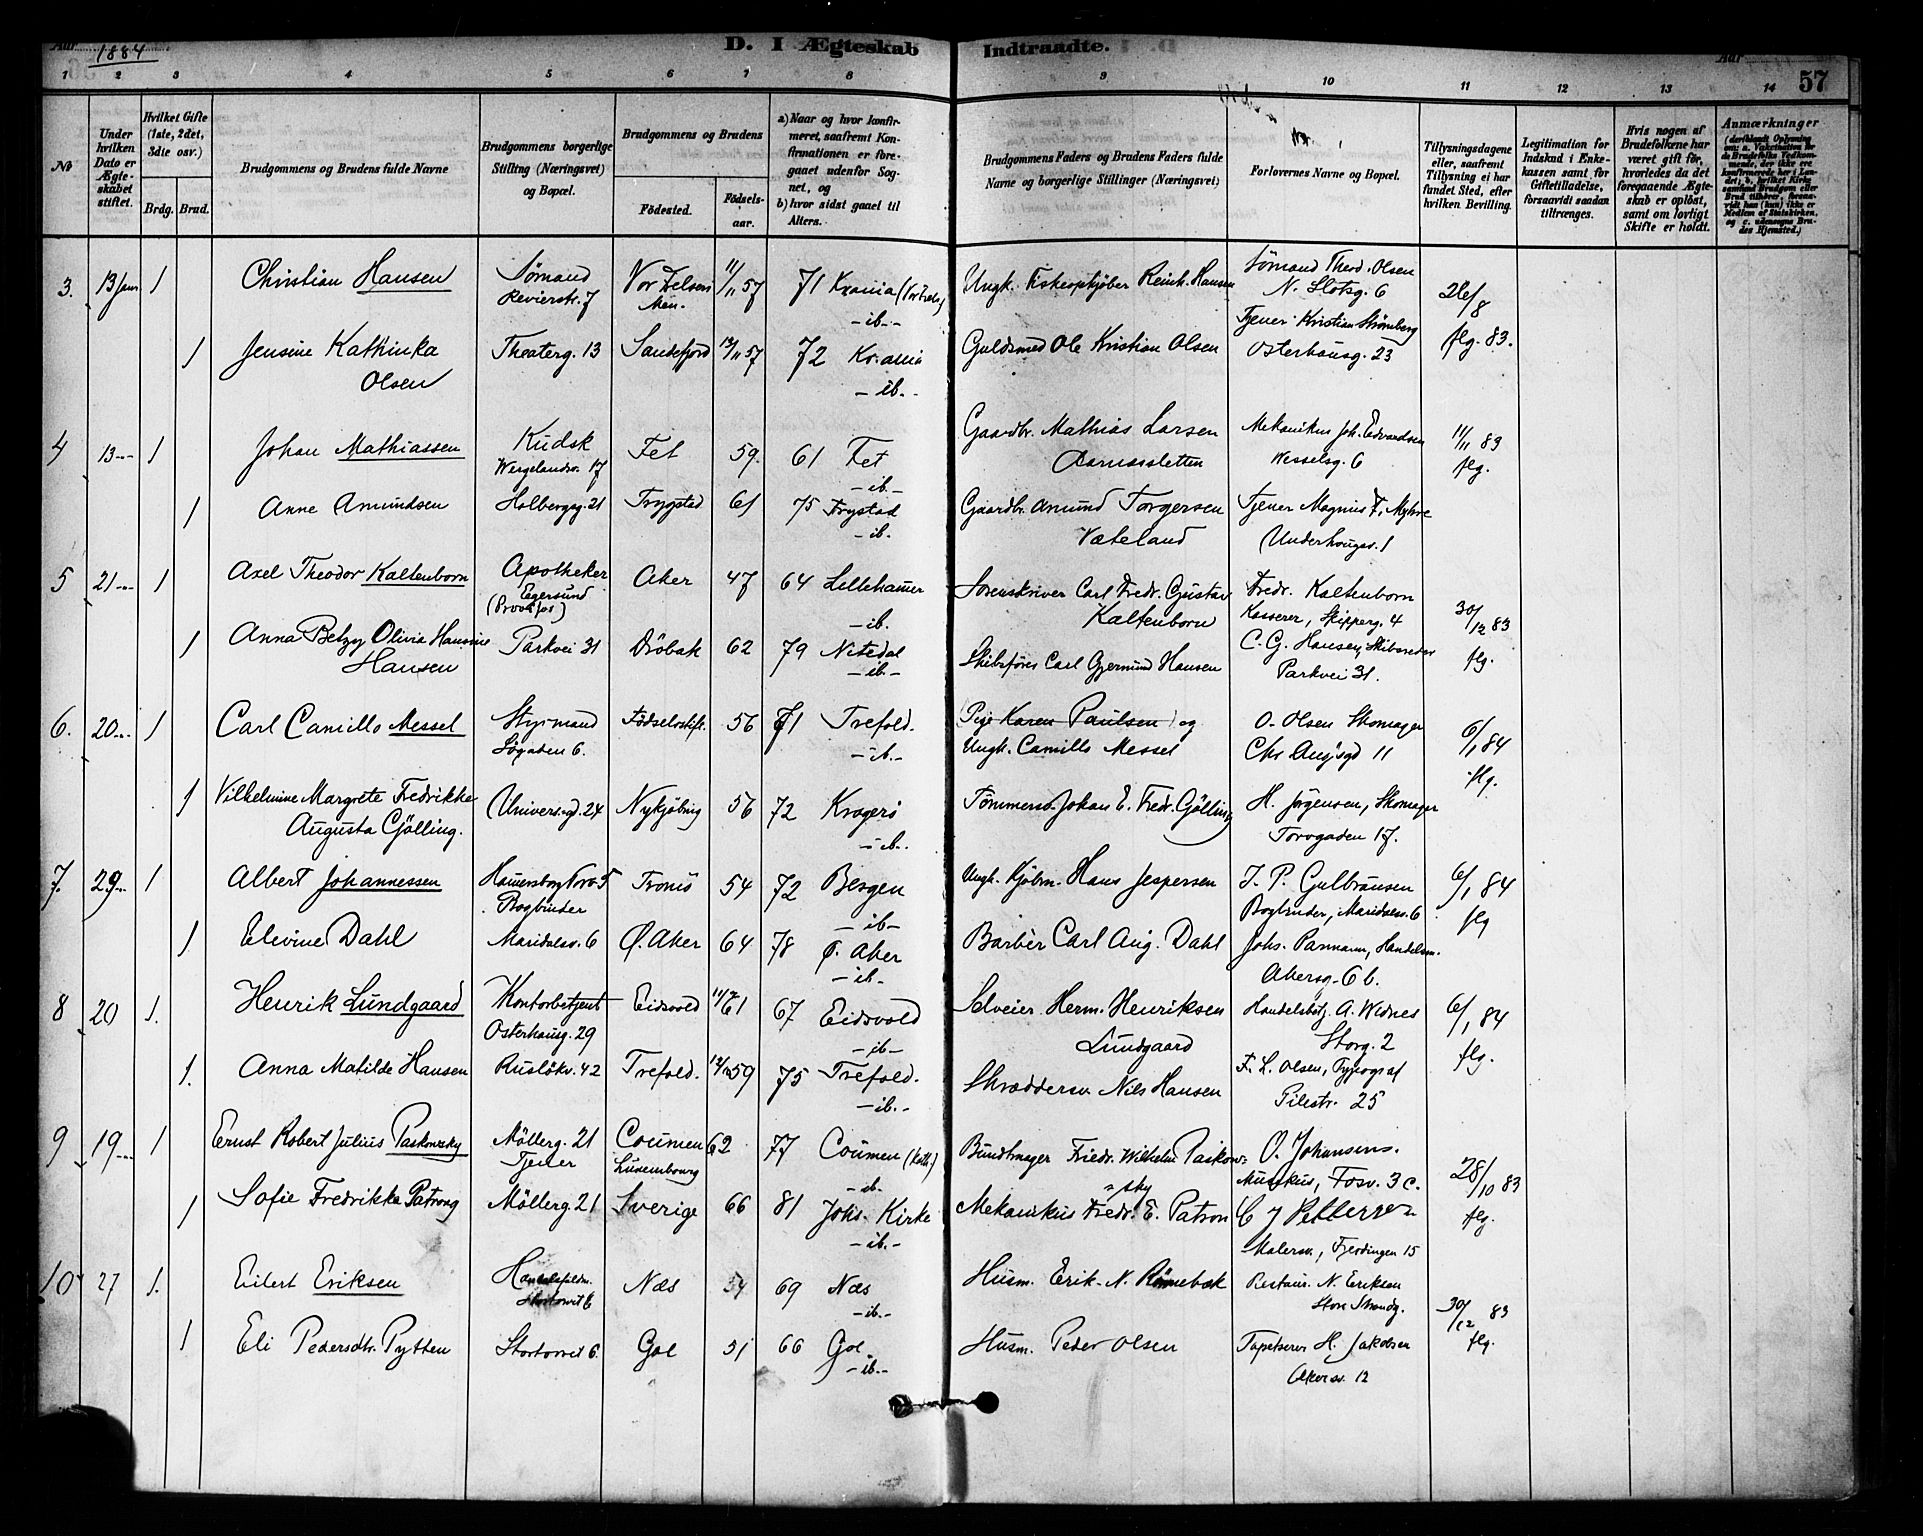 Aar 1884
D. I Ægteskab Indtraadte.
Aar
57
1 2 3 4 5 6 7 8 9 10 11 12 13 14
No
Under hvilken Dato er Ægteskabet stiftet.
Hvilket Gifte (1ste, 2det, 3die osv.)
Brdg. Brud.
Brudgommens og Brudens fulde Navne
Brudgommens og Brudens borgerlige Stilling (Næringsvei) og Bopæl.
Brudgommens og Brudens
Fødested.
Fødselsaar.
a) Naar og hvor konfirmeret, saafremt Konfirmationen er foregaaet udenfor Sognet, og
b) hvor sidst gaaet til Alters.
Brudgommens Faders og Brudens Faders fulde Navne og borgerlige Stillinger (Næringsvei)
Forlovernes Navne og Bopæl.
Tillysningsdagene eller, saafremt Tillysning ei har fundet Sted, efter hvilken Bevilling.
Legitimation for Indskud i Enkekassen samt for Giftetilladelse, forsaavidt saadan tiltrænges.
Hvis nogen af Brudefolkene har været gift før, hvorledes da det foregaaende Ægteskab er opløst, samt om lovligt Skifte er holdt.
Anmærkninger
3. 13 Jan 1 Christian Hansen Sømand Revierstr. 7 Vor Frelsers Men. 11/11 57 71 Krania (Vor Frels) -ib.- Ungk. Fiskeopkjøber Reinh. Hansen Sömand Theod. Olsen N. Slotsg. 6 26/8 flg. 83.
1 Jensine Kathinka Olsen Theaterg. 13 Sandefjord 57 72 Kr.ania -ib.- Guldsmed Ole Kristian Olsen Tjener Kristian Strömberg Osterhausg. 23
4 13 1 Johan Mathiassen Kudsk Wergelandsv. 17 Fet 59. 61 Fet -ib- Gaardbr. Mathias Larsen Mekanikus Joh. Edvardsen Wesselsg. 6 11/11 83 flg.
1 Anne Amundsen Holbergsg. 21 Trygstad 61 75 Trystad -ib. Gaardbr. Amund Torgersen Væteland Tjener Magnus F. Myhre Underhaugsv. 1
5 21 1 Axel Theodor Kaltenborn Apotheker Egersund Aker 47 64 Lillehamer -ib. Sorenskriver Carl Fredr. Gustav Kaltenborn Fredr. Kaltenborn Kasserer, Skipperg. 4 30/12 83 flg.
1 Anna Betzy Olivia Hansine Hansen Parkvei 31 Dröbak 62 79 Nitedal -ib- Skibsförer Carl Gjermund Hansen C. G. Hansen, Skibsreder Parkvei 31.
6. 20 1 Carl Camillo Messel Styrmand Søgaden 6. Födselsstift. 56 71 Trefold. -ib- (Pige Karen Paulsen) og Ungk. Camillo Messel O. Olsen Skomager Chr Augsgd 11 6/1 84 flg.
1 Vilhelmine Margrete Fredrikke Augusta Gjölling. Universg. 24 Nykjöbing 56 72 Kragerö -ib. Tömmerm. Johan E. Fredr. Gjölling H. Jørgensen, Skomager Torvgaden 17.
7. 29 1 Albert Johannessen Hamersborg Torv 5 Bogbinder Tromsö 54 72 Bergen -ib- Ungk. Kjøbm. Hans Jespersen J. P. Gulbransen Bogbinder, Maridalsv. 6 6/1 84 flg
1 Elevine Dahl Maridalsv. 6 Ø. Aker 64 78 Ø. Aker -ib- Barbér Carl Aug. Dahl Johs. Panmann, Handelsm. Akersg. 6 b.
8 20 1. Henrik Lundgaard Kontorbetjent Osterhausg. 29 Eidsvold 61 67 Eidsvold -ib- Selveier Herm. Henriksen Lundgaard Handelsbetj. A. Widnes Storg. 2 6/1 84 flg.
1. Anna Matilde Hansen Ruslökv. 42 Trefold. 59 75 Trefold. -ib.- Skræddersv Nils Hansen F. L. Olsen, Typograf Pilestr. 25
9 19 1 Ernst Robert Julius Paskowsky Möllerg. 21 Tjener Coumen Luxembourg 62 77 Coumen (kath.) -ib- Bundtmager Friedr. Wilhelm Paskowsky O. Johansens. Musikus, Fosv. 3 c. 28/10 83 flg.
1 Sofie Fredrikke Patrong Möllerg. 21 Sverige 66 81 Johs. Kirke -ib.- Mekanikus Fredr. E. Patron C J Pettersen Malersv., Fjerdingen 15
10 27 1. Eilert Eriksen Stortorvet 6 Næs 54 69 Næs -ib.- Husm. Erik N. Rönnebæk Restaur. N. Eriksen Store Strandg. 30/12 83 flg.
1 Eli Pedersdtr. Pytten Stortorvet 6. Gol 51 66 Gol. -ib.- Husm. Peder Olsen Tapetserer H. Jakobsen Akersv. 12